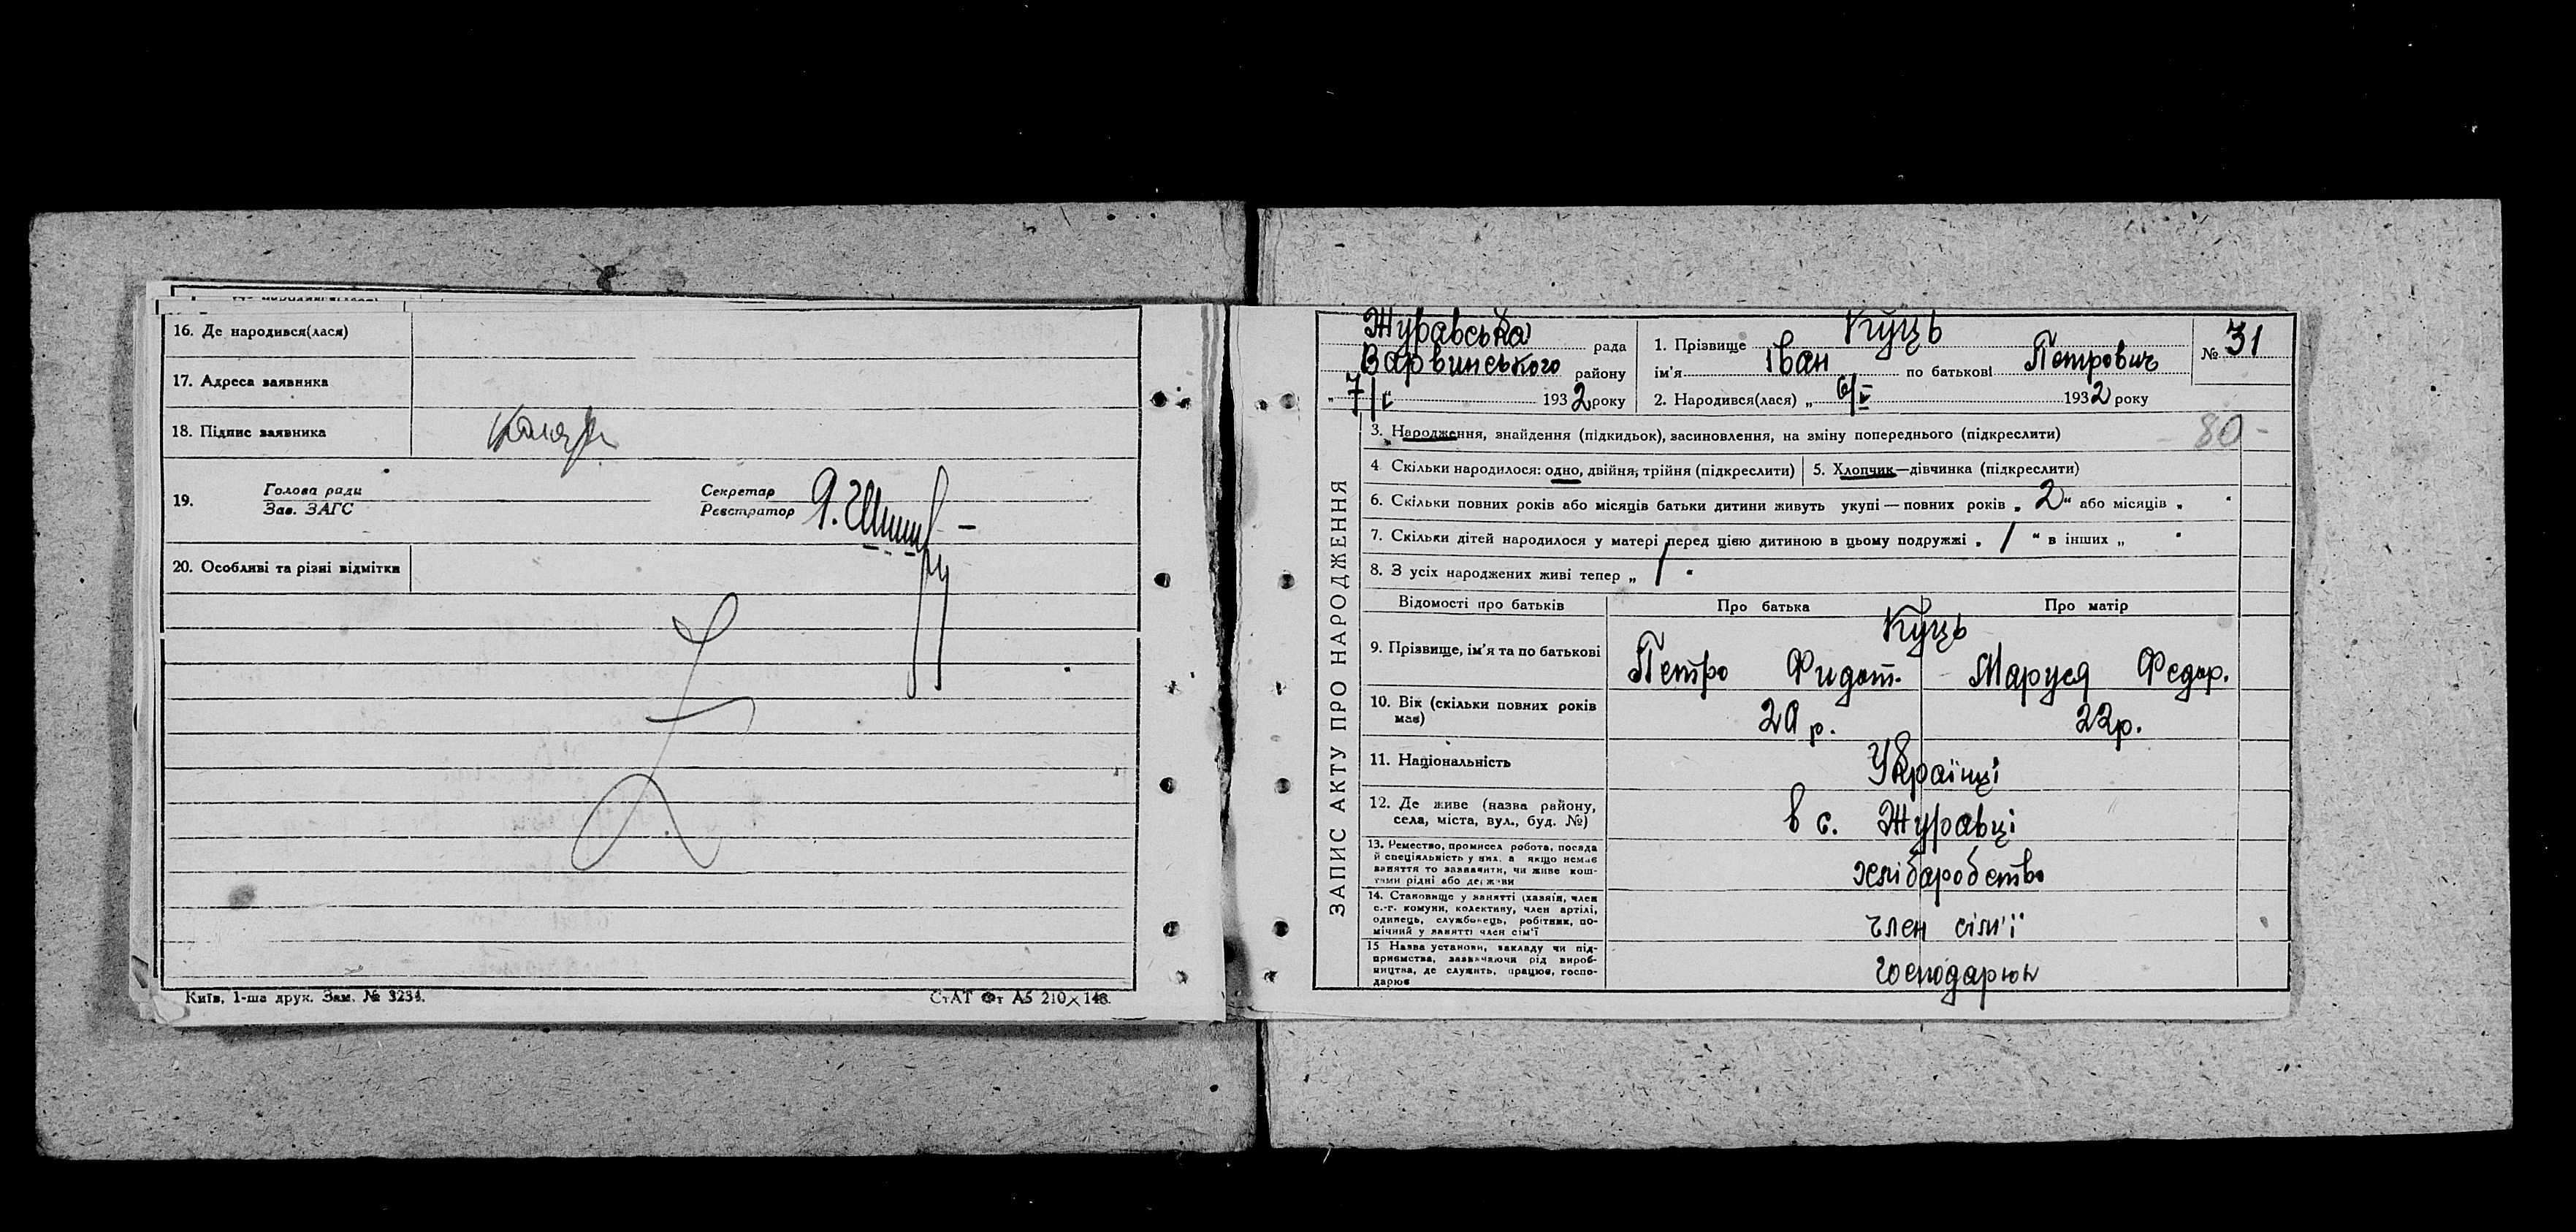 16. Де народився(лася)
17. Адреса заявника
18. Підпис заявника
19. Голова ради
Зав. ЗАГС
Секретар
Реєстратор
20. Особливі та різні відмітки
Київ, 1-ша друк. Зам. № 3234.
СтАТ Фт А5 210×148.
ЗАПИС АКТУ ПРО НАРОДЖЕННЯ
Журавська рада
Варвинського району
„ 7/V 1932 року
1. Прізвище Куць
ім'я Іван по батькові Петрович
№ 31
2. Народився(лася) „ 6/V 1932 року
3. Народження, знайдення (підкидьок), засиновлення, на зміну попереднього (підкреслити)
80
4 Скільки народилося: одно, двійня, трійня (підкреслити)
5. Хлопчик—дівчинка (підкреслити)
6. Скільки повних років або місяців батьки дитини живуть укупі — повних років „ 2 “ або місяців „
7. Скільки дітей народилося у матері перед цією дитиною в цьому подружжі „ 1 “ в інших „
8. З усіх народжених живі тепер „ 1 “
Відомості про батьків Про батька Про матір
9. Прізвище, ім'я та по батькові
Куць
Петро Фидот. Маруся Федор.
10. Вік (скільки повних років
має)
р. 22 р.
11. Національність Українці
12. Де живе (назва району,
села, міста, вул., буд. №)
в с. Журавці
13. Ремество, промисел робота, посада
й спеціяльність у них, а якщо немає
заняття то зазначити, чи живе кош-
тами рідні або держави
хлібаробство
14. Становище у занятті (хазяїн, член
с.-г. комуни, колективу, член артілі,
одинець, службовець, робітник, по-
мічний у занятті член сім'ї
член сім'ї
15 Назва установи, закладу чи під-
приємства, зазначаючи рід вироб-
ництва, де служить, працює, госпо-
дарює